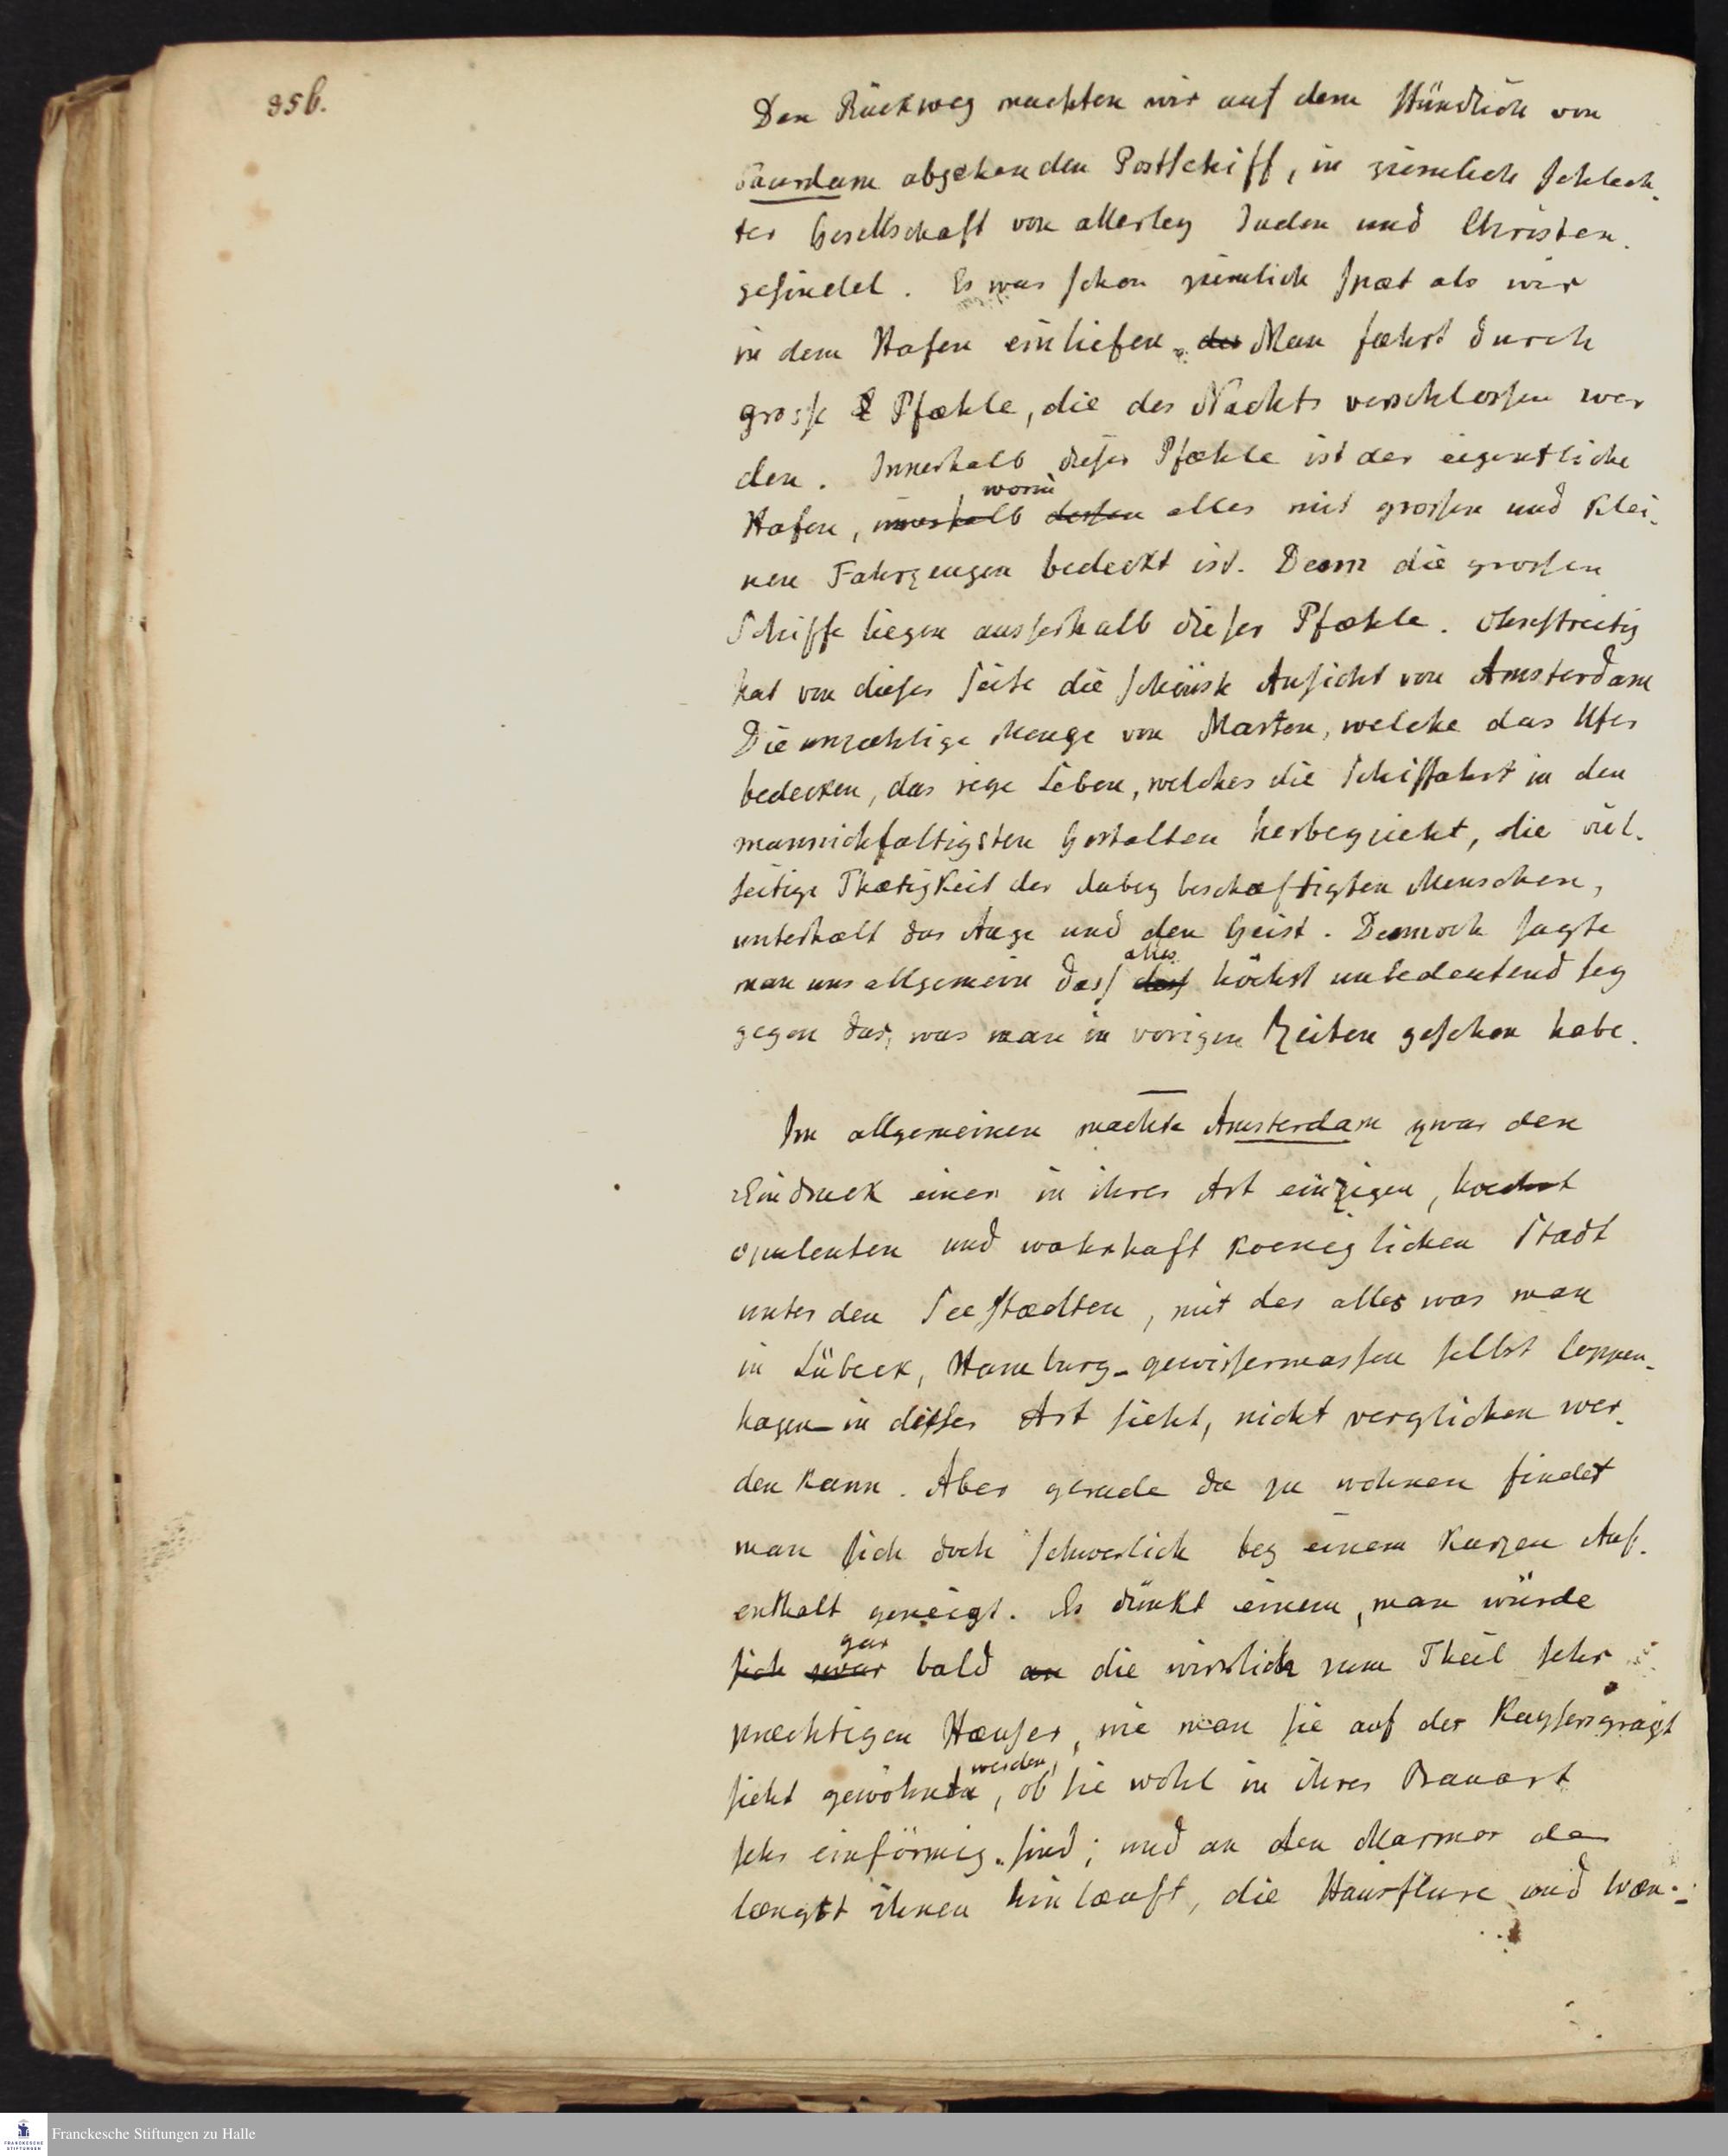 35b.
Den Rückweg machten wir auf dem stündlich von
Saardam abgehenden Postschiff, in ziemlich schlech-
ter Gesellschaft von allerley Juden und Christen-
gesindel. Es war schon ziemlich spæt als wir
in dem Hafen einliefen. der Man fæhrt durch
grosse Pfæhle, die des Nachts verschlossen wer
den. Innerhalb dieser Pfæhle ist der eigentliche
worin
Hafen, innerhalb dessen alles mit grossen und klei-
nen Fahrzeugen bedeckt ist. Denn die grossen
Schiffe liegen ausserhalb dieser Pfæhle. Ohnstreitig
hat von dieser Seite die schönste Ansicht von Amsterdam
Die unzæhlige Menge von Masten, welche das Ufer
bedecken, das rege Leben, welches die Schiffahrt in den
mannichfaltigsten Gestalten herbeyzieht, die viel-
seitige Thætigkeit der dabey beschæftigten Menschen,
unterhælt das Auge und den Geist. Dennoch sagte
alles
man uns allgemein dass dass höchst unbedeutend sey
gegen das, was man in vorigen Zeiten gesehen habe.
Im allgemeinen machte Amsterdam zwar den
Eindruck einer in ihrer Art einzigen, hoechst
opulenten und wahrhaft koeniglichen Stadt
unter den Seestædten, mit der alles was man
in Lübeck, Hamburg - gewissermassen selbst Coppen-
hagen - in dieser Art sieht, nicht verglichen wer-
den kann. Aber gerade da zu wohnen findet
man sich doch schwerlich bey einem kurzen Auf-
enthalt geneigt. Es dünkt einem, man würde
gar
sich zwar bald an die wirklich zum Theil sehr
præchtigen Hæuser, wie man sie auf der Kaysersgragt
werden,
sieht gewöhnen, ob sie wohl in ihrer Bauart
sehr einförmig sind; und an den Marmor der
længst ihnen hinlæuft, die Hausflure und Wæn-
Franckesche Stiftungen zu Halle